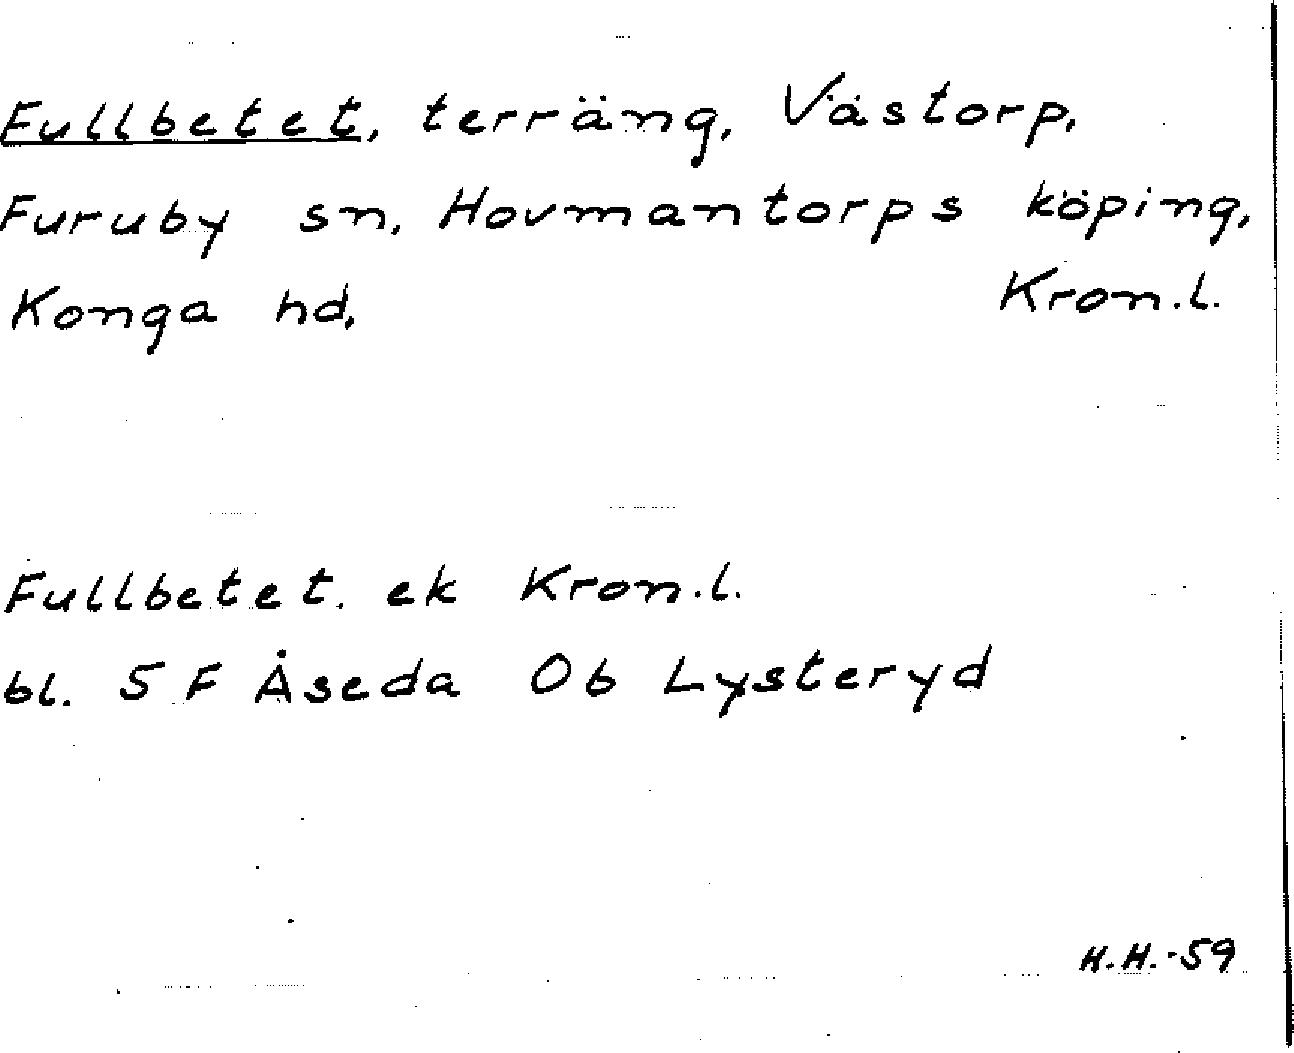 Fullbetet, terräng, Västorp,
Furuby sn, Hovmantorps köping,
Konga hd, Kron.l.
Fullbetet. ek Kron.l.
bl. 5 F Åseda Ob Lysteryd
H.H.-59